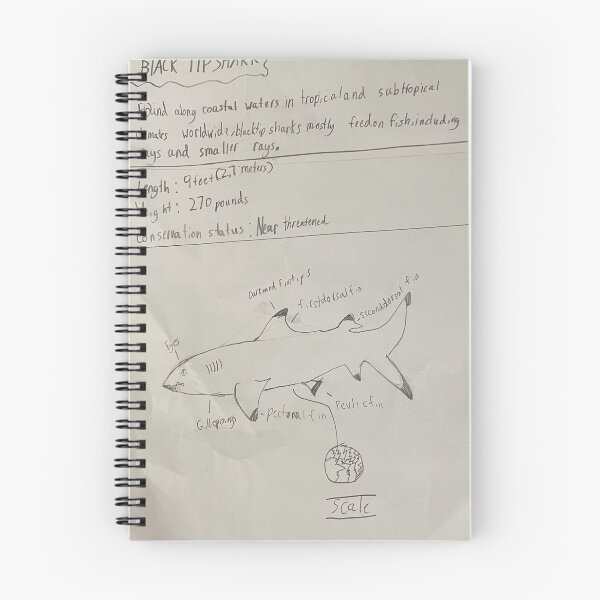 BLACK TIP SHARK
Found along coastal waters in tropical and subtropical
worldwide, blacktip sharks mostly feed on fish, including
rays and smaller rays.
Length: 9 feet (2,7 meters)
Weight: 270 pounds
Conservation status: Near threatened
fin tips
first dorsal fin
second dorsal fin
Gill openings
-pectoral fin
Pevlic fin
Scale